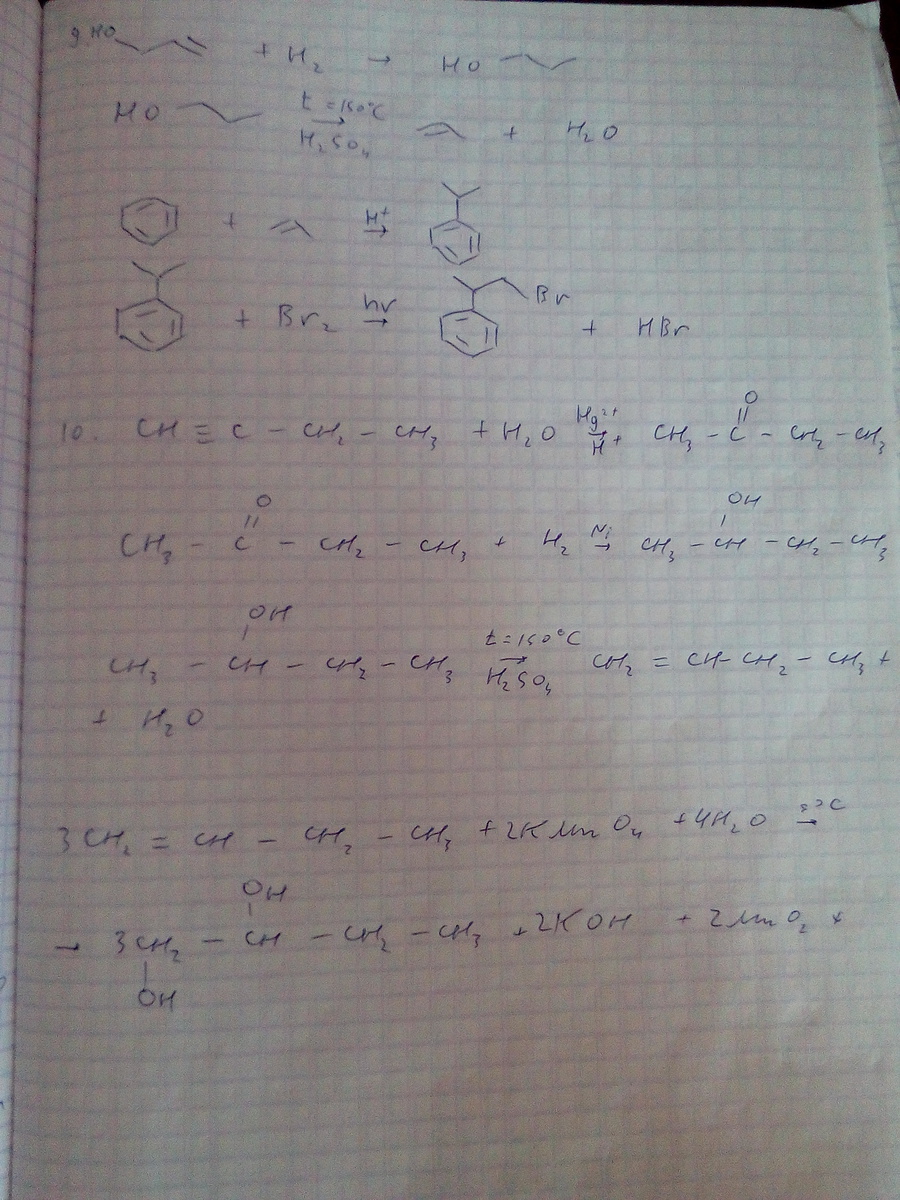 9. HO + H₂ → HO
HO t = 150°C → H₂SO₄ + H₂O
+ H⁺ →
+ Br₂ hν → Br + HBr
10. CH ≡ C – CH₂ – CH₃ + H₂O Hg²⁺ → H⁺ CH₃ – C(=O) – CH₂ – CH₃
CH₃ – C(=O) – CH₂ – CH₃ + H₂ Ni → CH₃ – CH(OH) – CH₂ – CH₃
CH₃ – CH(OH) – CH₂ – CH₃ t = 150°C → H₂SO₄ CH₂ = CH – CH₂ – CH₃ +
+ H₂O
3CH₂ = CH – CH₂ – CH₃ + 2KMnO₄ + 4H₂O °C →
→ 3CH₂(OH) – CH(OH) – CH₂ – CH₃ + 2KOH + 2MnO₂